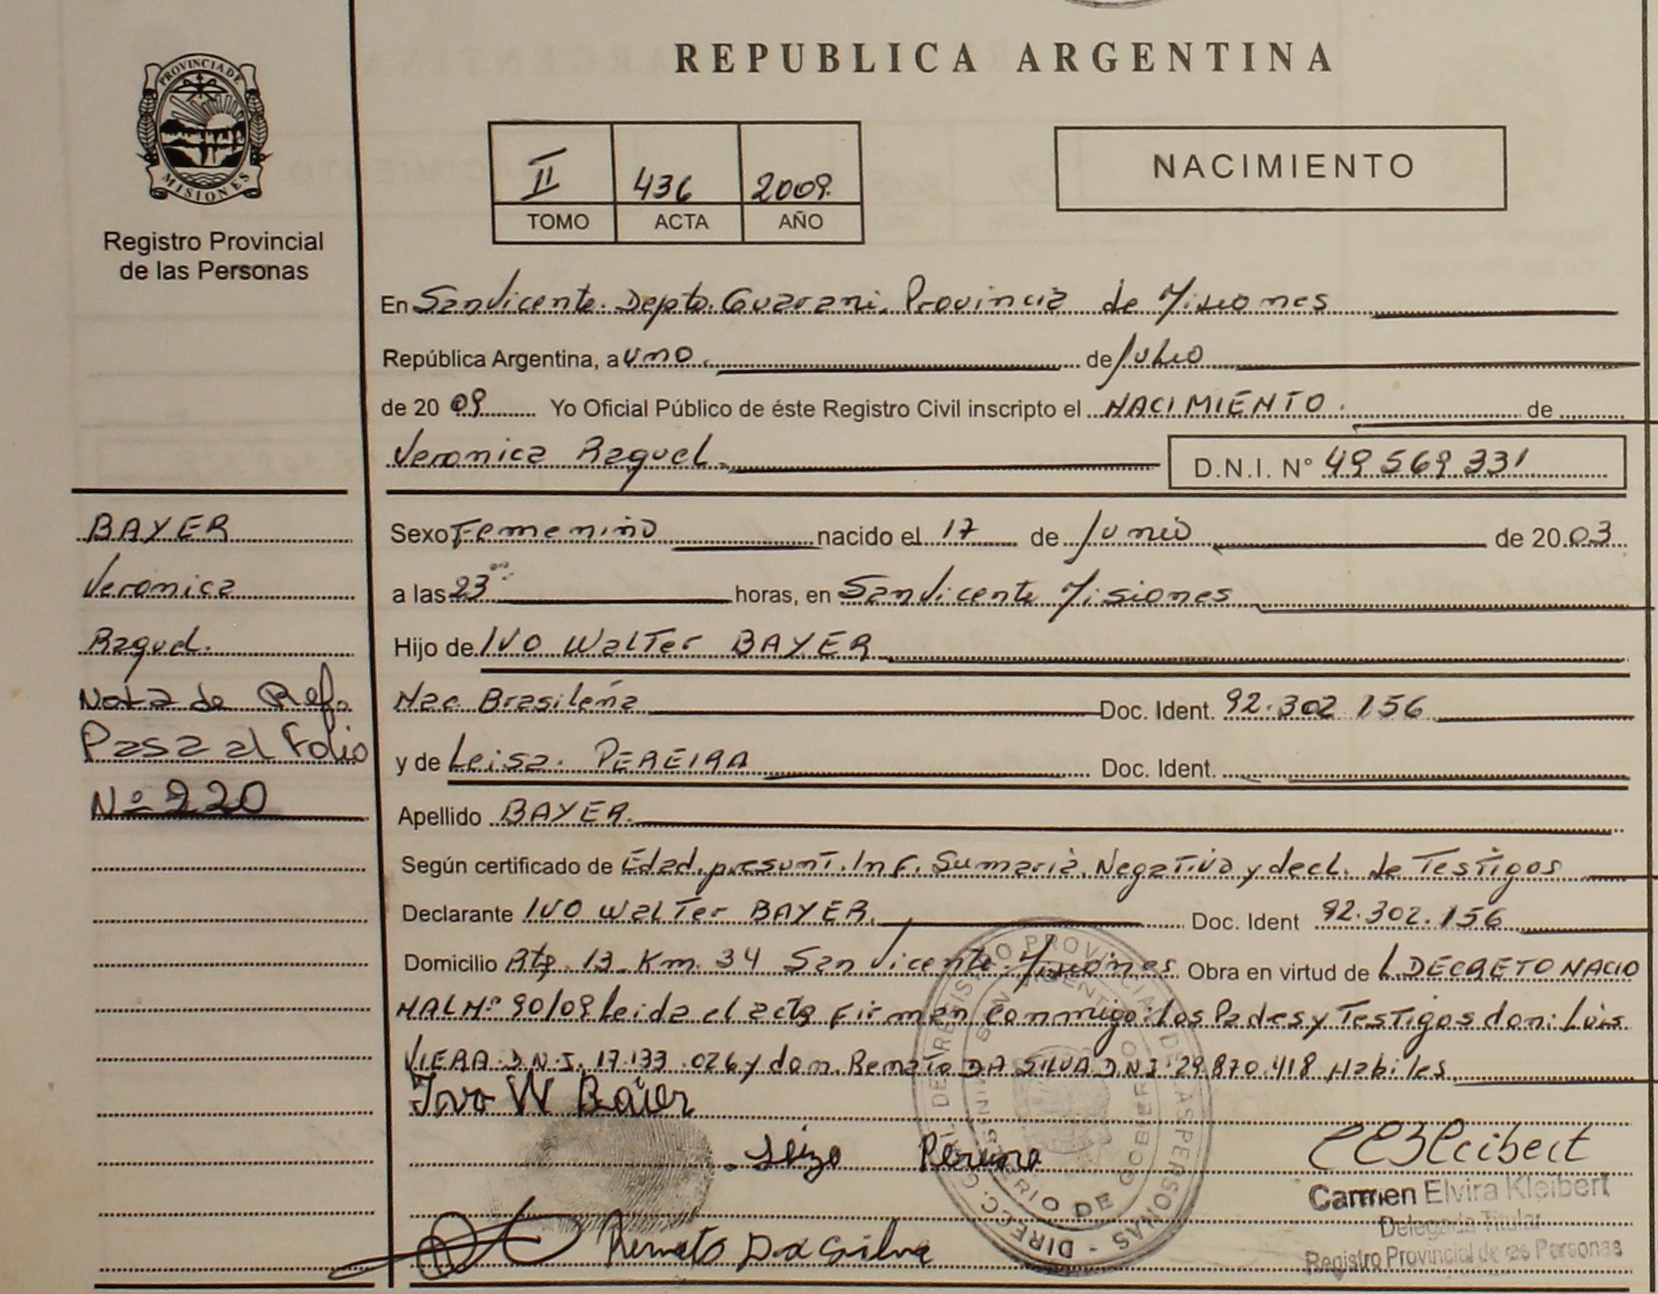 REPUBLICA ARGENTINA
PROVINCIA DE
MISIONES
Registro Provincial
de las Personas
II 436 2009.
TOMO ACTA AÑO
NACIMIENTO
En San Vicente. Depto. Guarani. Provincia de Misiones
República Argentina, a uno. de Julio
de 20 09 Yo Oficial Público de éste Registro Civil inscripto el NACIMIENTO. de
Veronica Raquel. D.N.I. N° 49 569 331
BAYER
Veronica
Raquel.
Nota de Ref.
Pasa al Folio
Nº 220
Sexo Femenino nacido el 17 de Junio de 20 03
a las 23 horas, en San Vicente Misiones
Hijo de IVO Walter BAYER
Nac Brasileña Doc. Ident. 92.302 156
y de Leisa. PEREIRA Doc. Ident.
Apellido BAYER.
Según certificado de Edad. presunt. Inf. Sumaria. Negativa y decl. de Testigos
Declarante IVO Walter BAYER. Doc. Ident 92.302.156
Domicilio Rta. 13. Km. 34 San Vicente. Misiones. Obra en virtud de L.DECRETO NACIO
NAL Nº 90/09 leida el acta Firman Conmigo: Los Padres y Testigos don: Luis
VIERA. D.N.I. 17.133.026 y don. Renato DA SILVA D.N.I. 29.870.418 Habiles
Ivo W Baier
Leiza Pereira
Carmen Elvira Kleibert
Delegada Titular
Registro Provincial de las Personas
Renato Da Silva